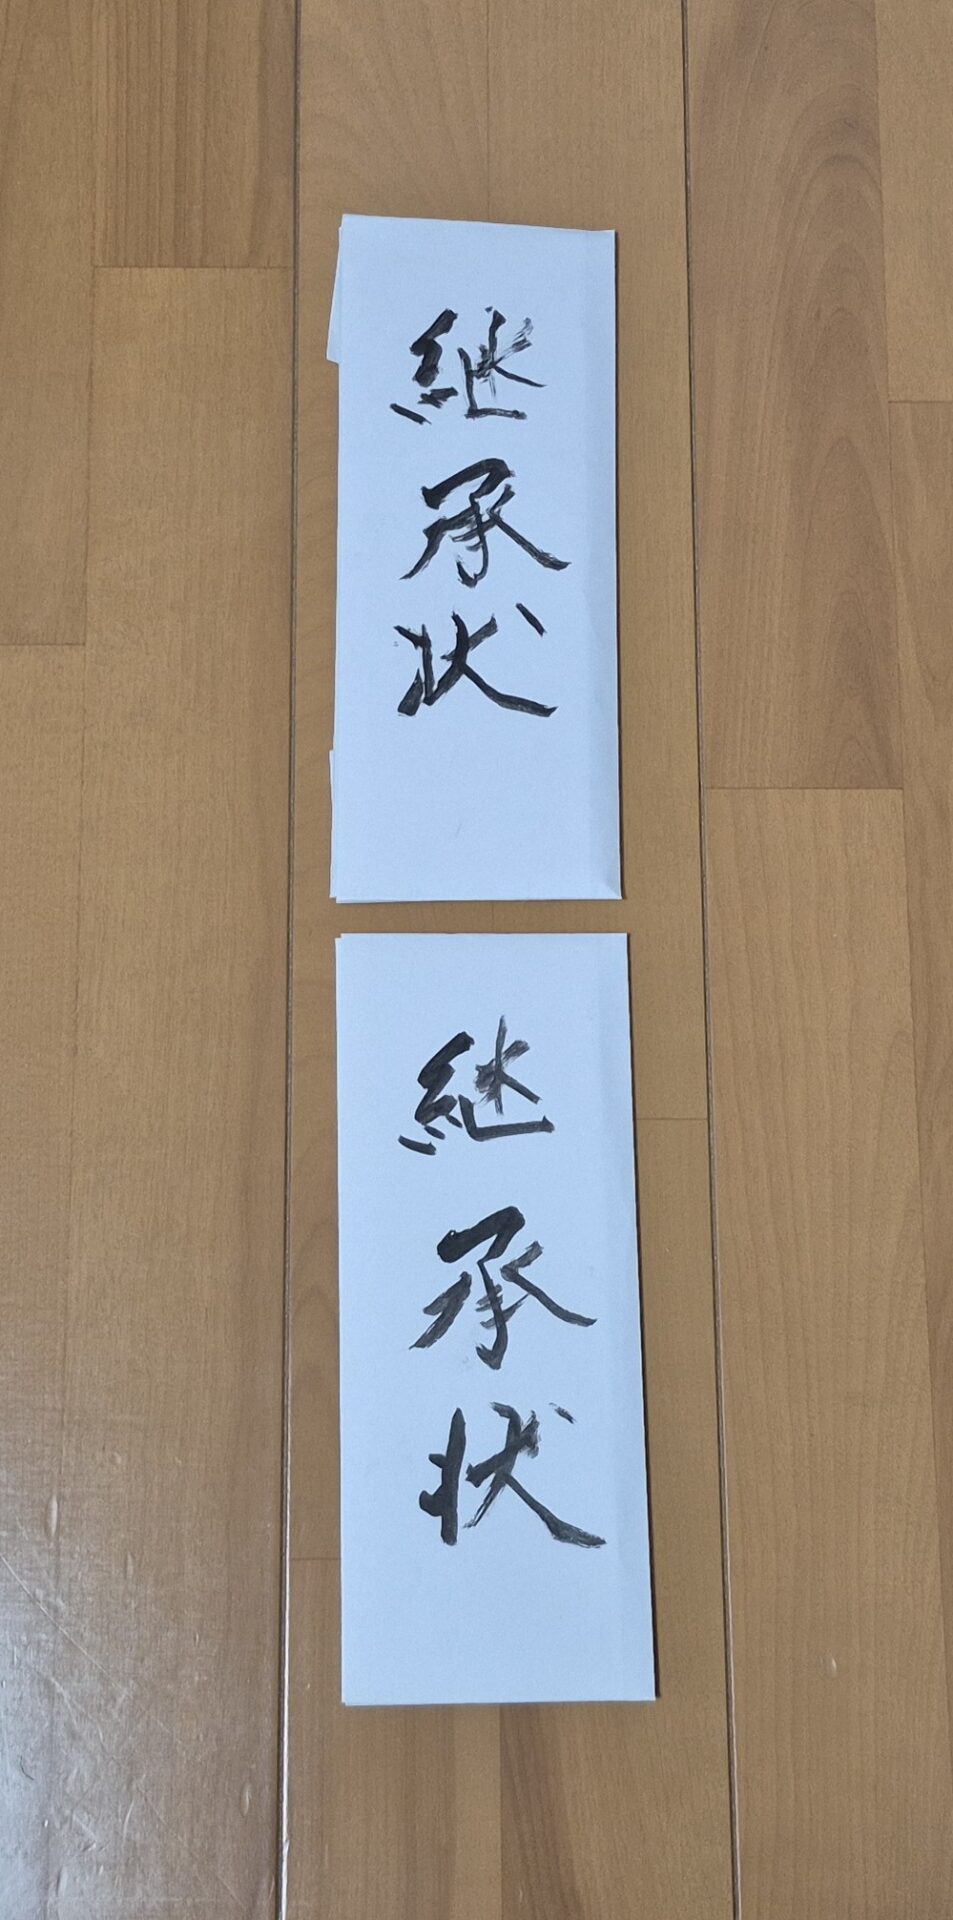 継承状
継承状